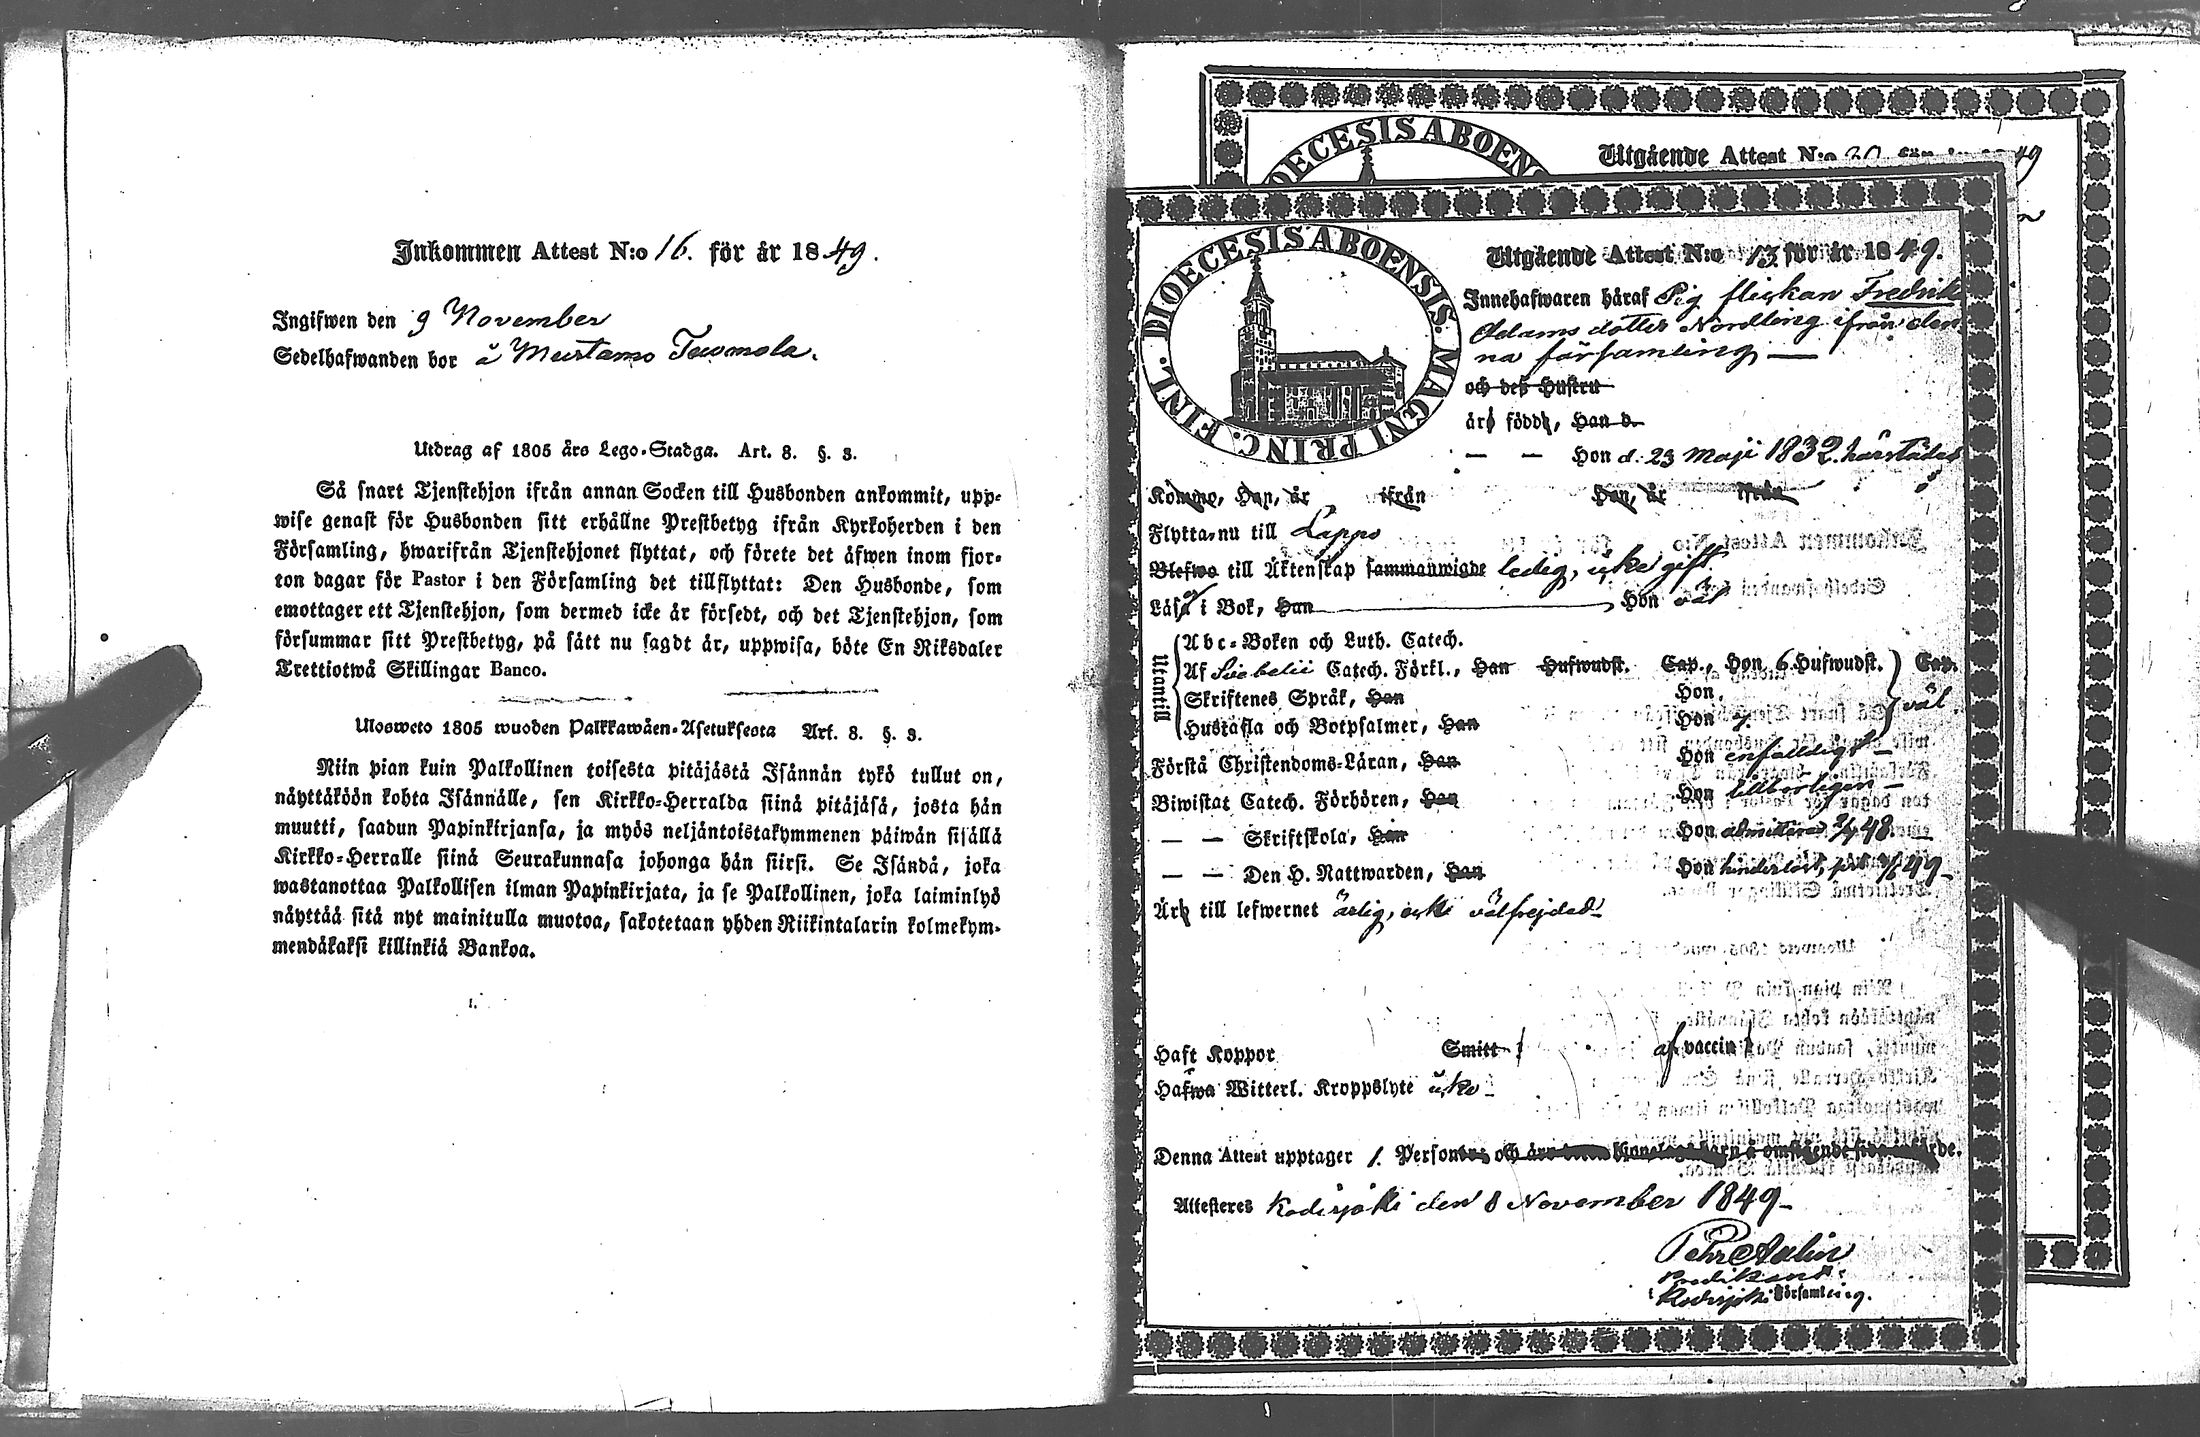 Inkommen Attest N:o 16. för år 1849.
Ingifwen den 9 November
Sedelhafwanden bor å Mustamo Tuomola.
Utdrag af 1805 års Lego-Stadga. Art. 8. §. 3.
Så snart Tjenstehjon ifrån annan Socken till Husbonden ankommit, upp-
wise genast för Husbonden sitt erhållne Prestbetyg ifrån Kyrkoherden i den
Församling, hwarifrån Tjenstehjonet flyttat, och förete det äfwen inom fjor-
ton dagar för Pastor i den Församling det tillflyttat: Den Husbonde, som
emottager ett Tjenstehjon, som dermed icke är försedt, och det Tjenstehjon, som
försummar sitt Prestbetyg, på sätt nu sagdt är, uppwisa, böte En Riksdaler
Trettiotwå Skillingar Banco.
Ulosweto 1805 wuoden Palkkawäen-Asetuksesta Art. 8. §. 3.
Niin pian kuin Palkollinen toisesta pitäjästä Isännän tykö tullut on,
näyttäköön kohta Isännälle, sen Kirkko-Herralda siinä pitäjäsä, josta hän
muutti, saadun Papinkirjansa, ja myös neljäntoistakymmenen päiwän sisällä
Kirkko-Herralle siinä Seurakunnasa johonga hän siirsi. Se Isändä, joka
wastanottaa Palkollisen ilman Papinkirjata, ja se Palkollinen, joka laiminlyö
näyttää sitä nyt mainitulla muotoa, sakotetaan yhden Riikintalarin kolmekym-
mendäkaksi killinkiä Bankoa.
1.
DIOECESIS ABOEN
Utgående Attest N:o 20 för år 1849
DIOECESIS ABOENSIS. MAGNI PRINC. FINL.
Utgående Attest N:o 13 för år 1849.
Innehafwaren häraf Pig flickan Fredrik
Adams dotter Nordling ifrån den
na församling —
och deß Hustru
äro födde, Han d.
— — Hon d. 23 Maji 1832. härstädes
Komne, Han, år ifrån Hon, år ifrån
Flytta nu till Lappo
Blefwo till Äktenskap sammanwigde ledig, icke gift.
Läsa i Bok, Han Hon väl
Utantill
Abc-Boken och Luth. Catech.
Af Svebelii Catech. Förkl., Han Hufwudst. Cap., Hon 6 Hufwudst. Cap.
Skriftenes Språk, Han Hon
Hustafla och Botpsalmer, Han Hon väl
Förstå Christendoms-Läran, Han Hon enfalldigt —
Biwistat Catech. Förhören, Han Hon tillbörligen —
— — Skriftskola, Han Hon admitterad 48.
— — Den H. Nattwarden, Han Hon hinderlöst, 49 —
Äro till lefwernet ärlig, och välfrejdad —
Haft Koppor Smitt af vaccin
Hafwa Witterl. Kroppslyte icke —
Denna Attest upptager 1. Personer och
Attesteres Kodisjoki den 8 November 1849 —
Pehr Aulin
Predikant
i Kodisjoki Församling.